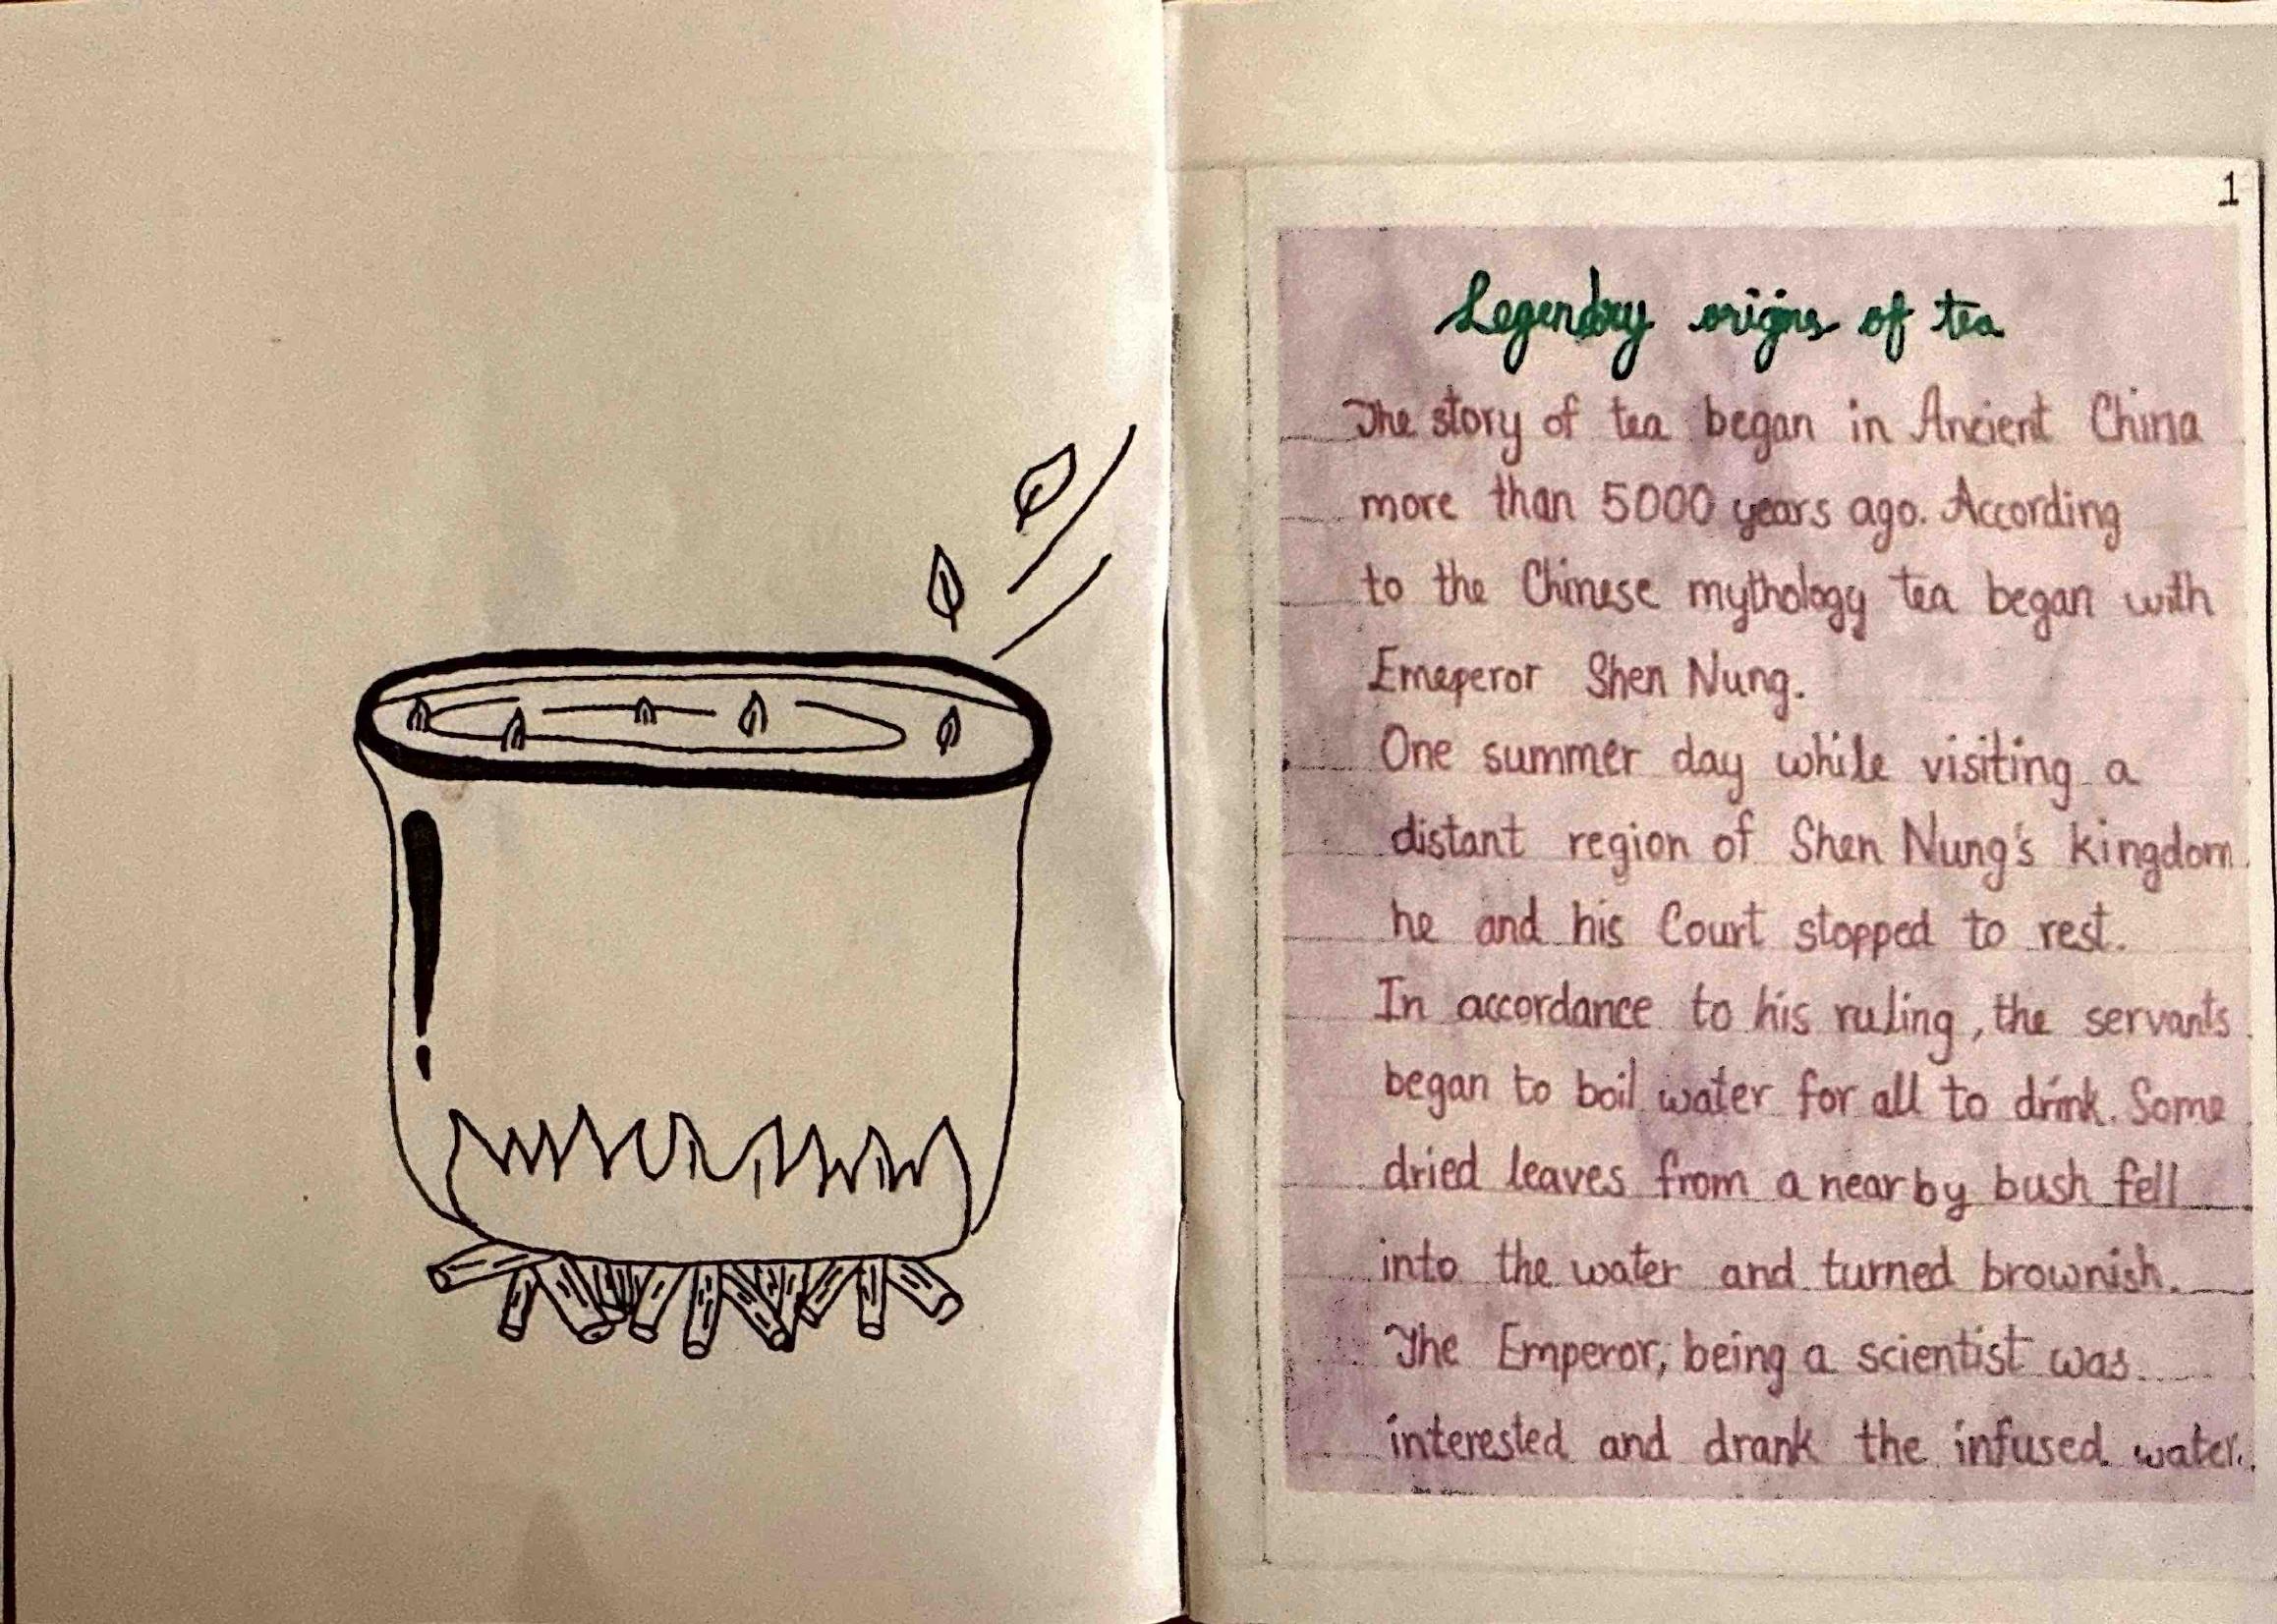 1
Legendry origins of tea
The story of tea began in Ancient China
more than 5000 years ago. According
to the Chinese mythology tea began with
Emeperor Shen Nung.
One summer day while visiting a
distant region of Shen Nung's kingdom
he and his Court stopped to rest.
In accordance to his ruling, the servants
began to boil water for all to drink. Some
dried leaves from a nearby bush fell
into the water and turned brownish.
The Emperor, being a scientist was
interested and drank the infused water.